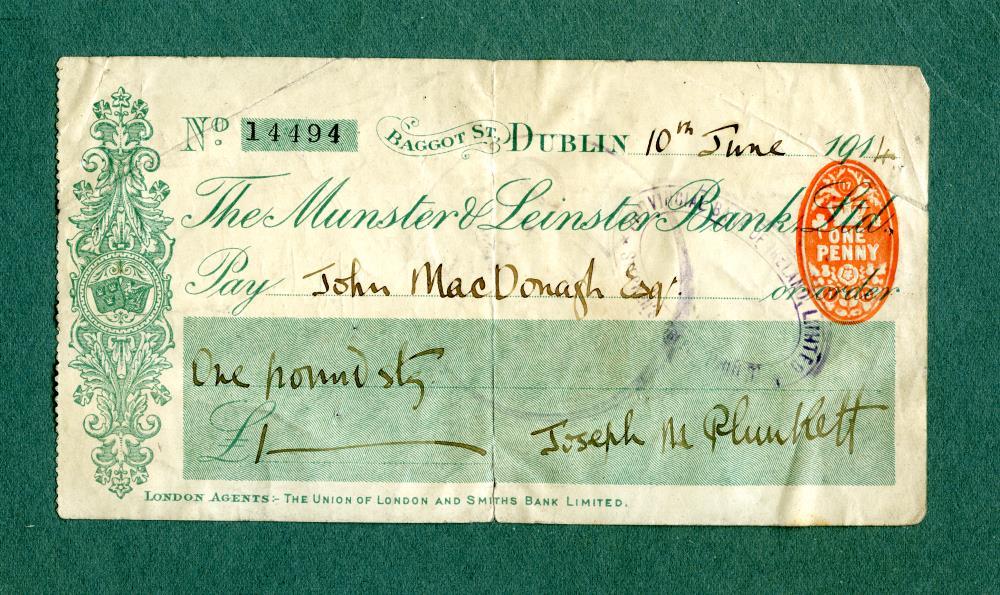 Nº 14494 BAGGOT ST. DUBLIN 10th June 1914
The Munster & Leinster Bank, Ltd.,
ONE PENNY
Pay John MacDonagh Esqr. or order
One pound stg
£1
Joseph M Plunkett
LONDON AGENTS:- THE UNION OF LONDON AND SMITHS BANK LIMITED.